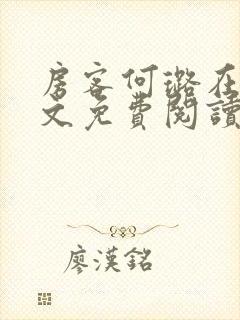 房客何璐在
文免费閱讀
廖漢銘